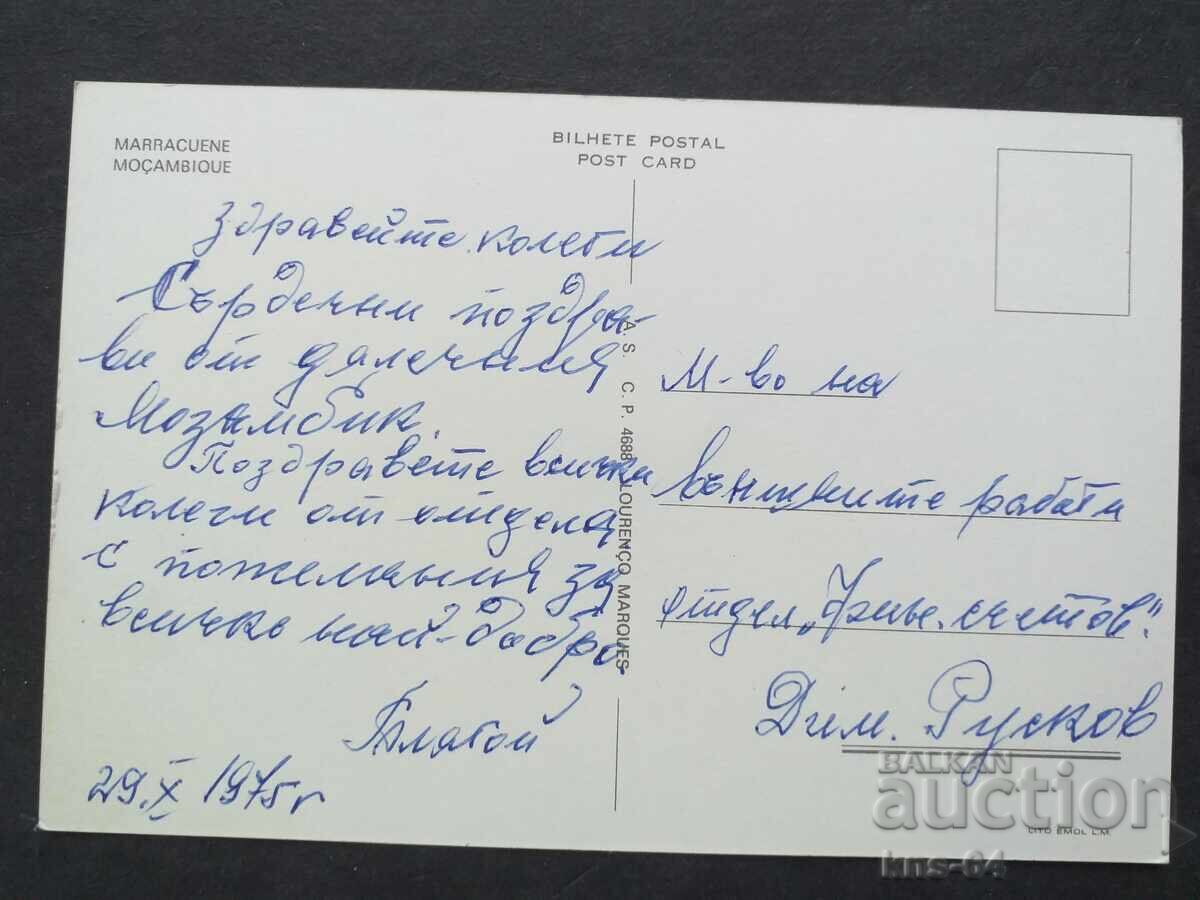 MARRACUENE
MOÇAMBIQUE
BILHETE POSTAL
POST CARD
Здравейте колеги
Сърдечни поздра-
ви от далечния
Мозамбик.
Поздравете всички
колеги от отдела
с пожелания за
всичко най-добро
Благой
29.X 1975 г
A. S. C. P. 4688 LOURENÇO MARQUES
М-во на
външните работи
отдел „Фин. счетов."
Дим. Русков
LITO EMOL L.M.
BALKAN
auction
kns-64